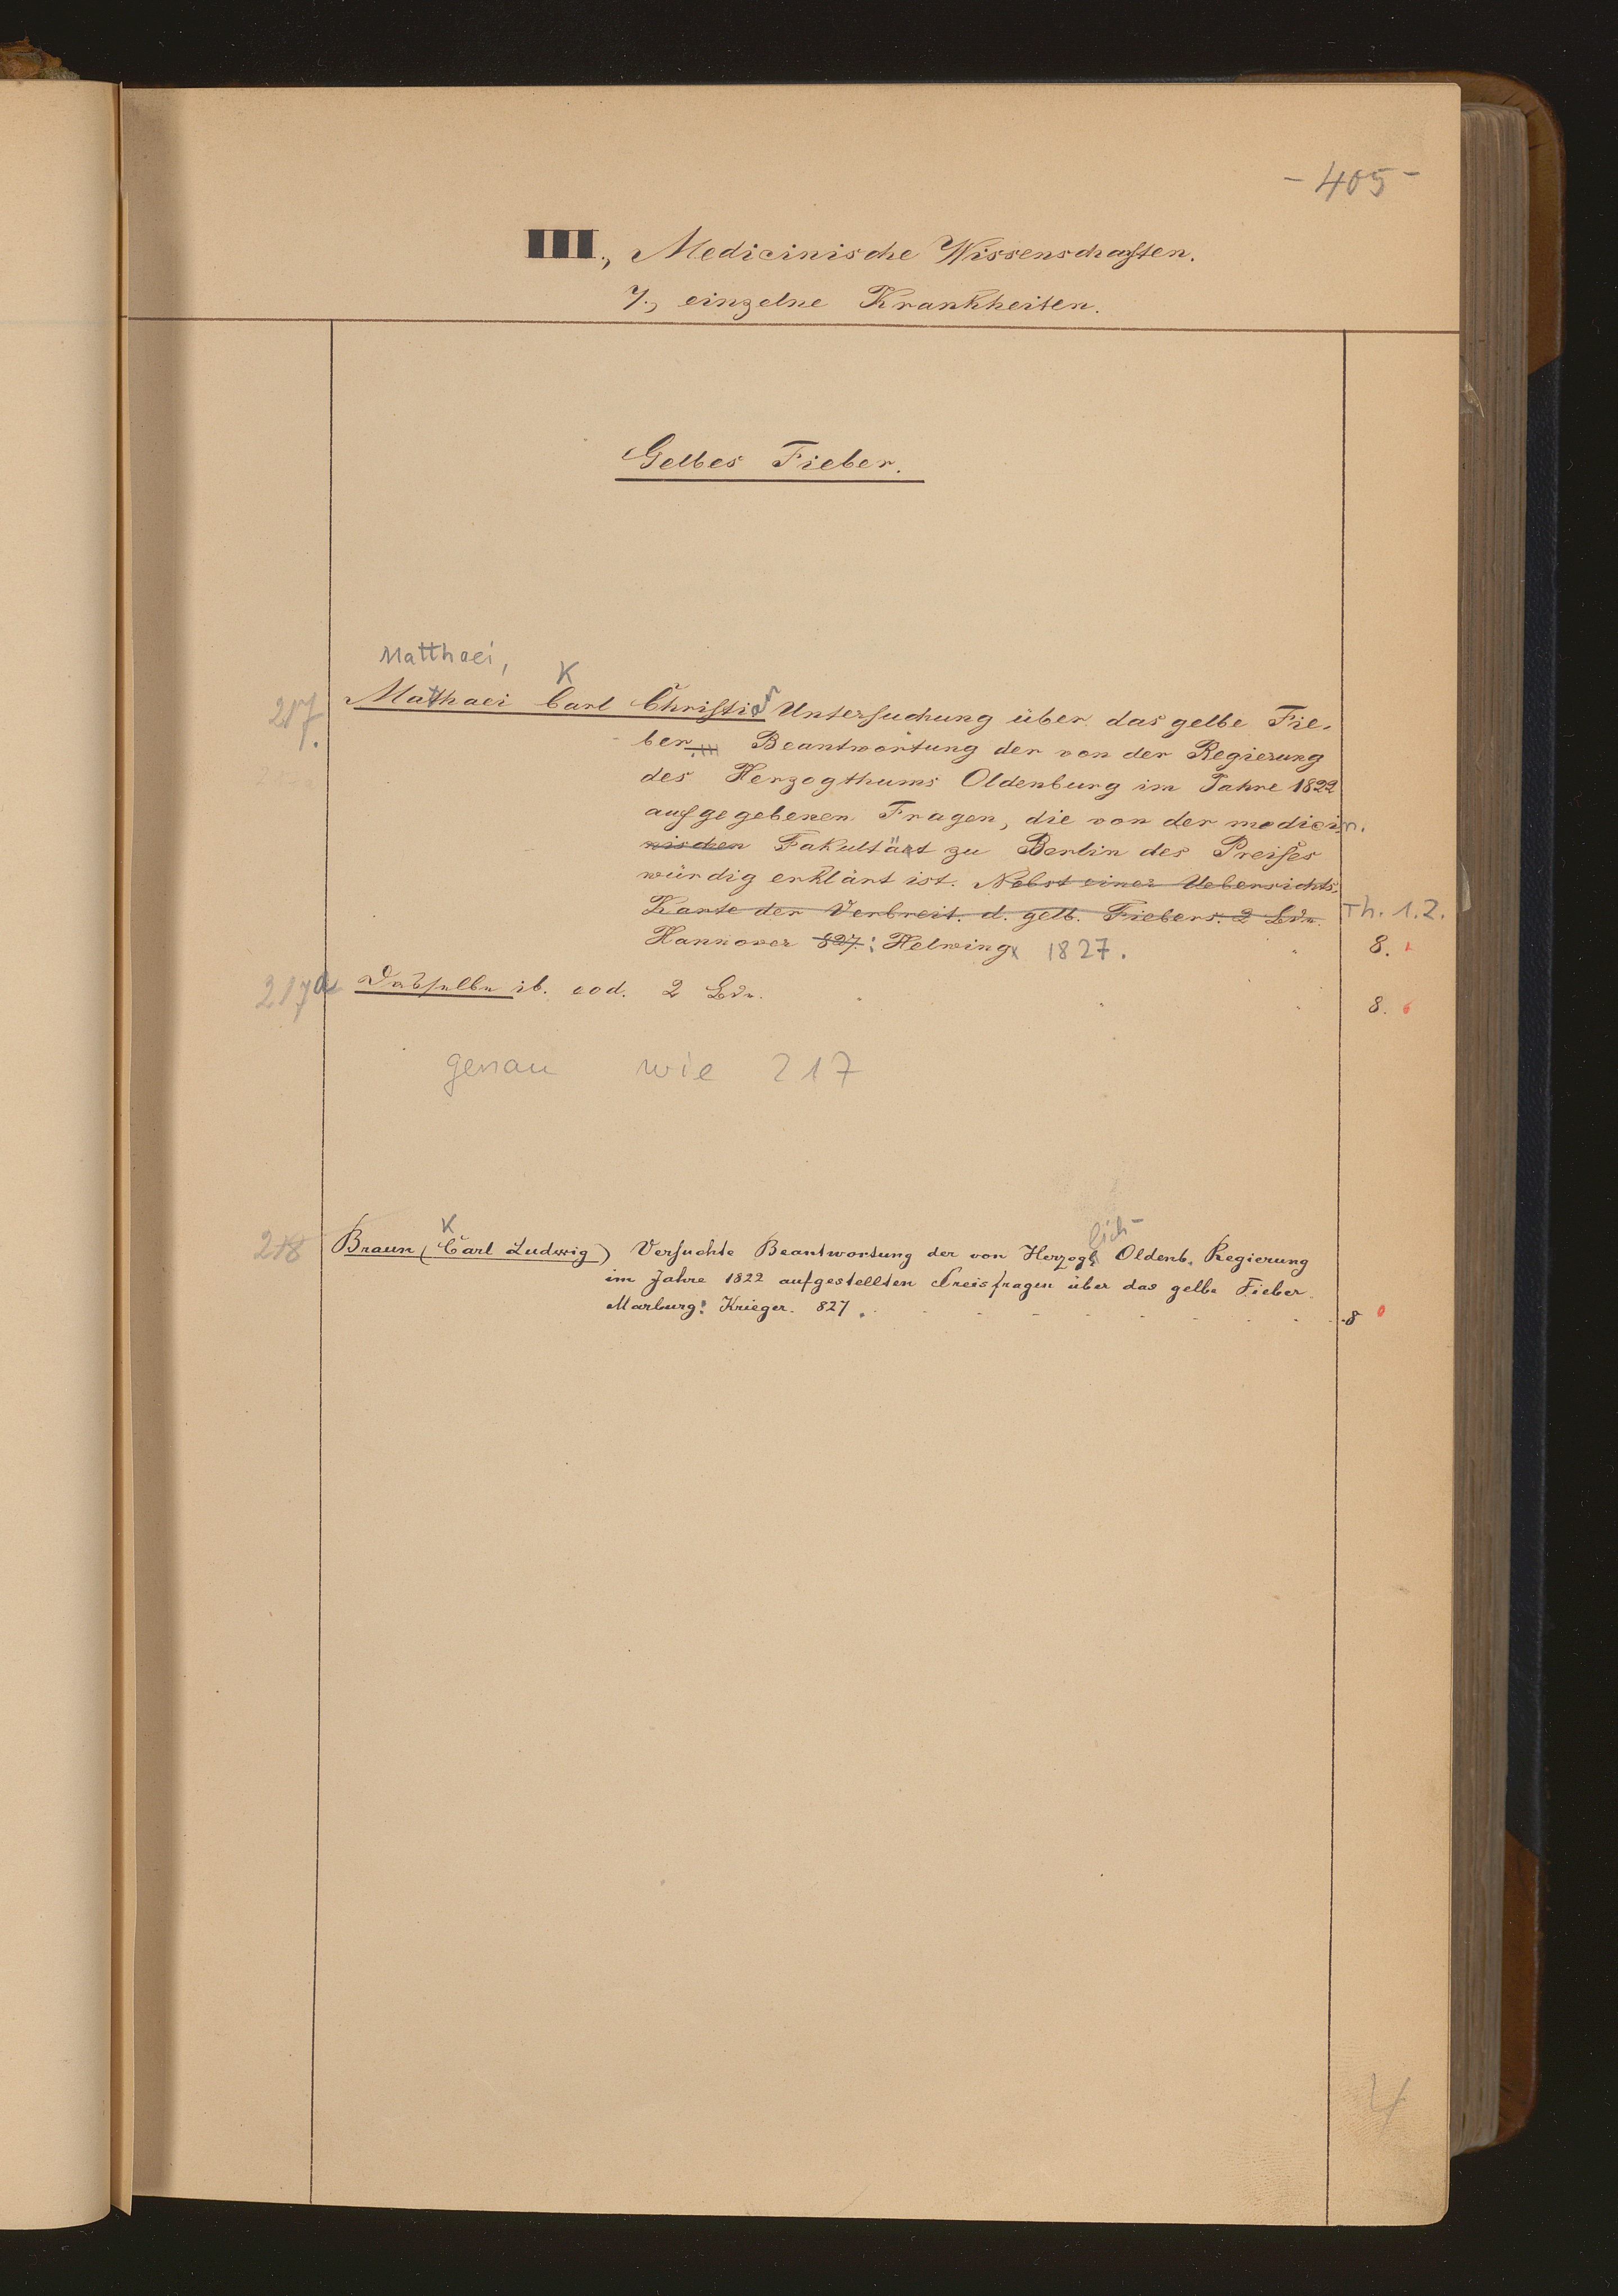 - 405 -
III., Medicinische Wissenschaften.
7., einzelne Krankheiten.
Gelbes Fieber.
Matthaei,
K
217. Mathaei Carl Christian Untersuchung über das gelbe Fie-
ber Beantwortung der von der Regierung
217a des Herzogthums Oldenburg im Jahre 1822
aufgegebenen Fragen, die von der medicin.
nischen Fakultät zu Berlin des Preises
würdig erklärt ist. Nebst einer Uebersichts-
Karte der Verbreit. d. gelb. Fiebers. 2 Bde. Th. 1.2.
Hannover 827. : Helwing 1827. 8.
217a Dasselbe ib. eod. 2 Bde. 8.
genau wie 217
K lich-
218 Braun (Carl Ludwig) Versuchte Beantwortung der von Herzogl. Oldenb. Regierung
im Jahre 1822 aufgestellten Preisfragen über das gelbe Fieber.
Marburg: Krieger. 827. 8
4